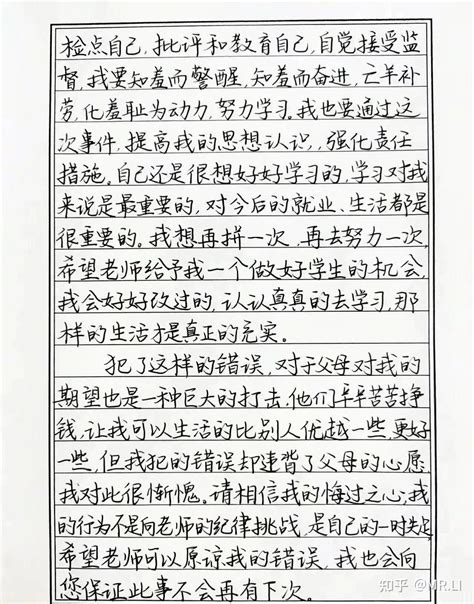 检点自己，批评和教育自己，自觉接受监
督。我要知羞而警醒，知羞而奋进，亡羊补
劳，化羞耻为动力，努力学习。我也要通过这
次事件，提高我的思想认识，强化责任
措施。自己还是很想好好学习的，学习对我
来说是最重要的，对今后的就业、生活都是
很重要的。我想再拼一次，再去努力一次，
希望老师给予我一个做好学生的机会，
我会好好改过的，认认真真的去学习，那
样的生活才是真正的充实。
犯了这样的错误，对于父母对我的
期望也是一种巨大的打击，他们辛辛苦苦挣
钱，让我可以生活的比别人优越一些，更好
一些，但我犯的错误却违背了父母的心愿，
我对此很惭愧。请相信我的悔过之心；我
的行为不是向老师的纪律挑战，是自己的一时失足，
希望老师可以原谅我的错误，我也会向
您保证此事不会再有下次。
知乎 @MR.LI